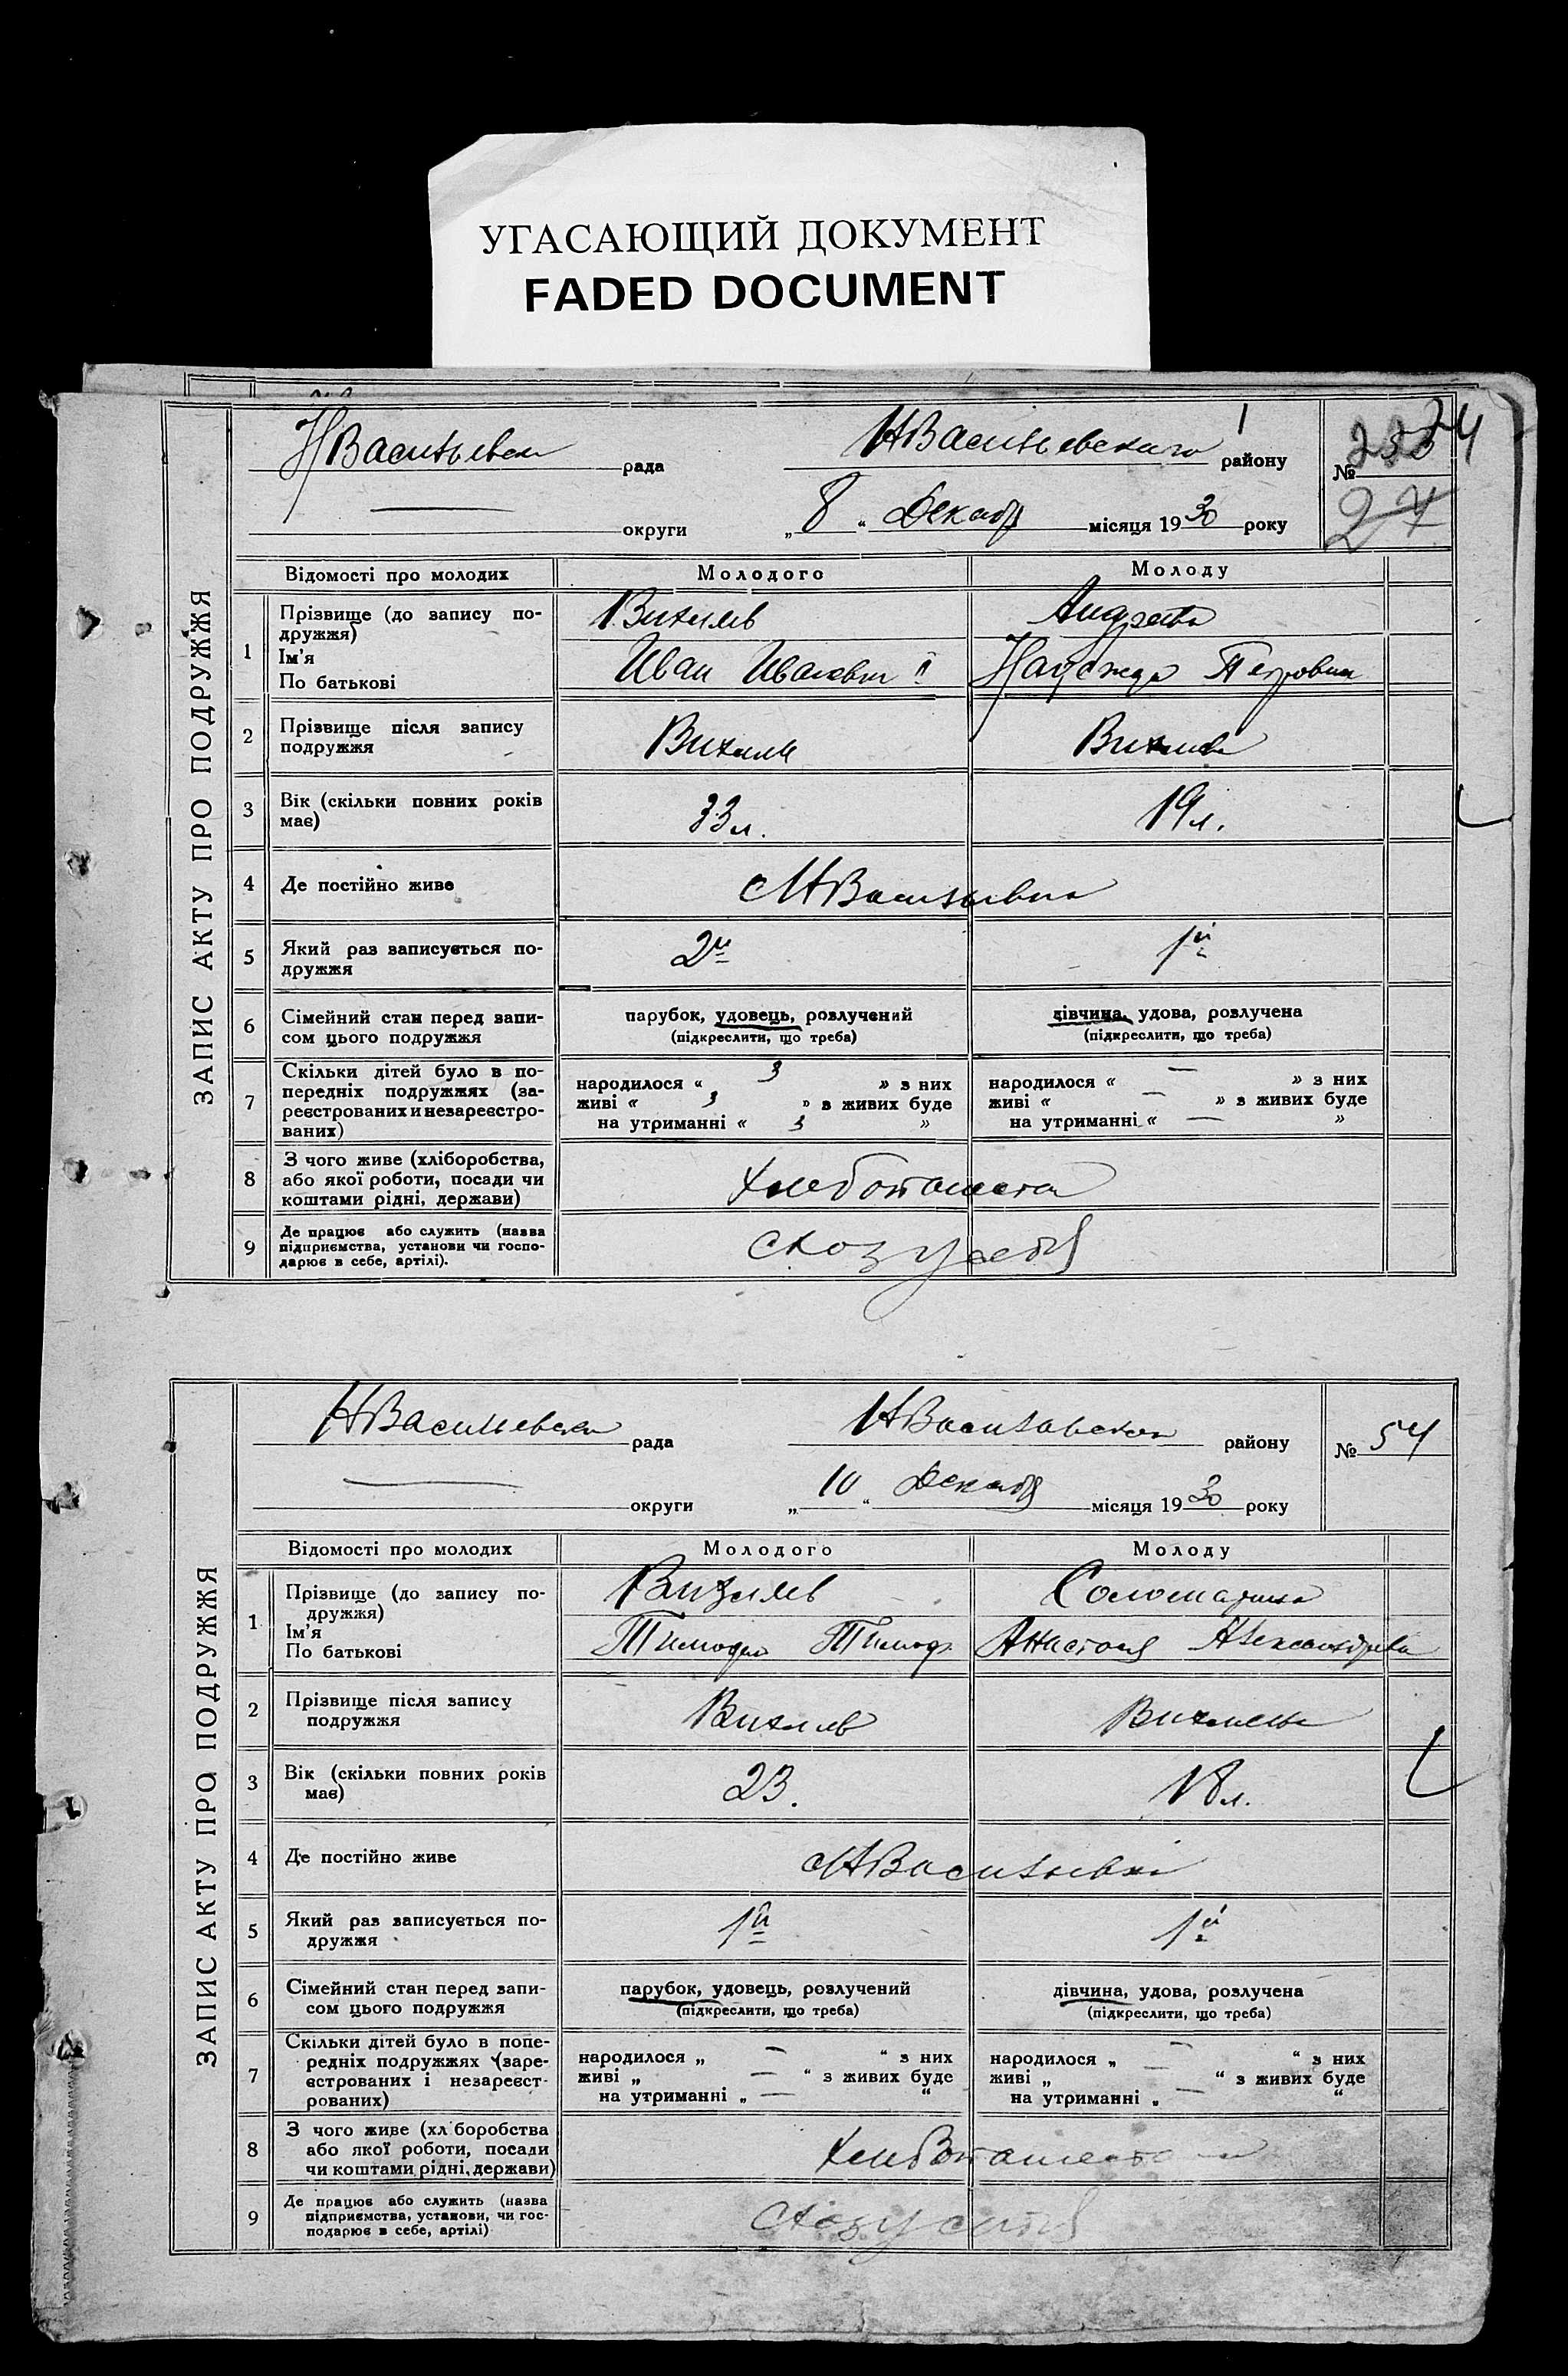 УГАСАЮЩИЙ ДОКУМЕНТ
FADED DOCUMENT
ЗАПИС АКТУ ПРО ПОДРУЖЖЯ
НВасильевск рада НВасильевского району №
округи „ 8 “ Декабр місяця 19 30 року 27
Відомості про молодих Молодого Молоду
1 Прізвище (до запису по-
дружжя)
Ім'я
По батькові
Андреева
Иван Иванович II Надежда Петровна
2 Прізвище після запису
подружжя
3 Вік (скільки повних років
має)
33 л. 19 л.
4 Де постійно живе
с НВасильевка
5 Який раз записується по-
дружжя
2й 1й
6 Сімейний стан перед запи-
сом цього подружжя
парубок, удовець, розлучений
(підкреслити, що треба)
дівчина, удова, розлучена
(підкреслити, що треба)
7 Скільки дітей було в по-
передніх подружжях (за-
реєстрованих и незареєстро-
ваних)
народилося « 3 » з них
живі « 3 » з живих буде
на утриманні « 3 »
народилося « — » з них
живі « — » з живих буде
на утриманні « — »
8 З чого живе (хліборобства,
або якої роботи, посади чи
коштами рідні, держави)
9 Де працює або служить (назва
підприємства, установи чи госпо-
дарює в себе, артілі).
ЗАПИС АКТУ ПРО ПОДРУЖЖЯ
НВасильевск рада НВасильевском району № 54
округи „ 10 “ Декабр місяця 19 30 року
Відомості про молодих Молодого Молоду
1 Прізвище (до запису по-
дружжя)
Ім'я
По батькові
Тимофей Тимоф Анастасия Александрова
2 Прізвище після запису
подружжя
3 Вік (скільки повних років
має)
23. 18 л.
4 Де постійно живе
с НВасильевка
5 Який раз записується по-
дружжя
1й 1й
6 Сімейний стан перед запи-
сом цього подружжя
парубок, удовець, розлучений
(підкреслити, що треба)
дівчина, удова, розлучена
(підкреслити, що треба)
7 Скільки дітей було в попе-
редніх подружжях (заре-
єстрованих і незареєст-
рованих)
народилося „ — “ з них
живі „ — “ з живих буде
на утриманні „ — “
народилося „ — “ з них
живі „ — “ з живих буде
на утриманні „ — “
8 З чого живе (хл боробства
або якої роботи, посади
чи коштами рідні, держави)
9 Де працює або служить (назва
підприємства, установи, чи гос-
подарює в себе, артілі)